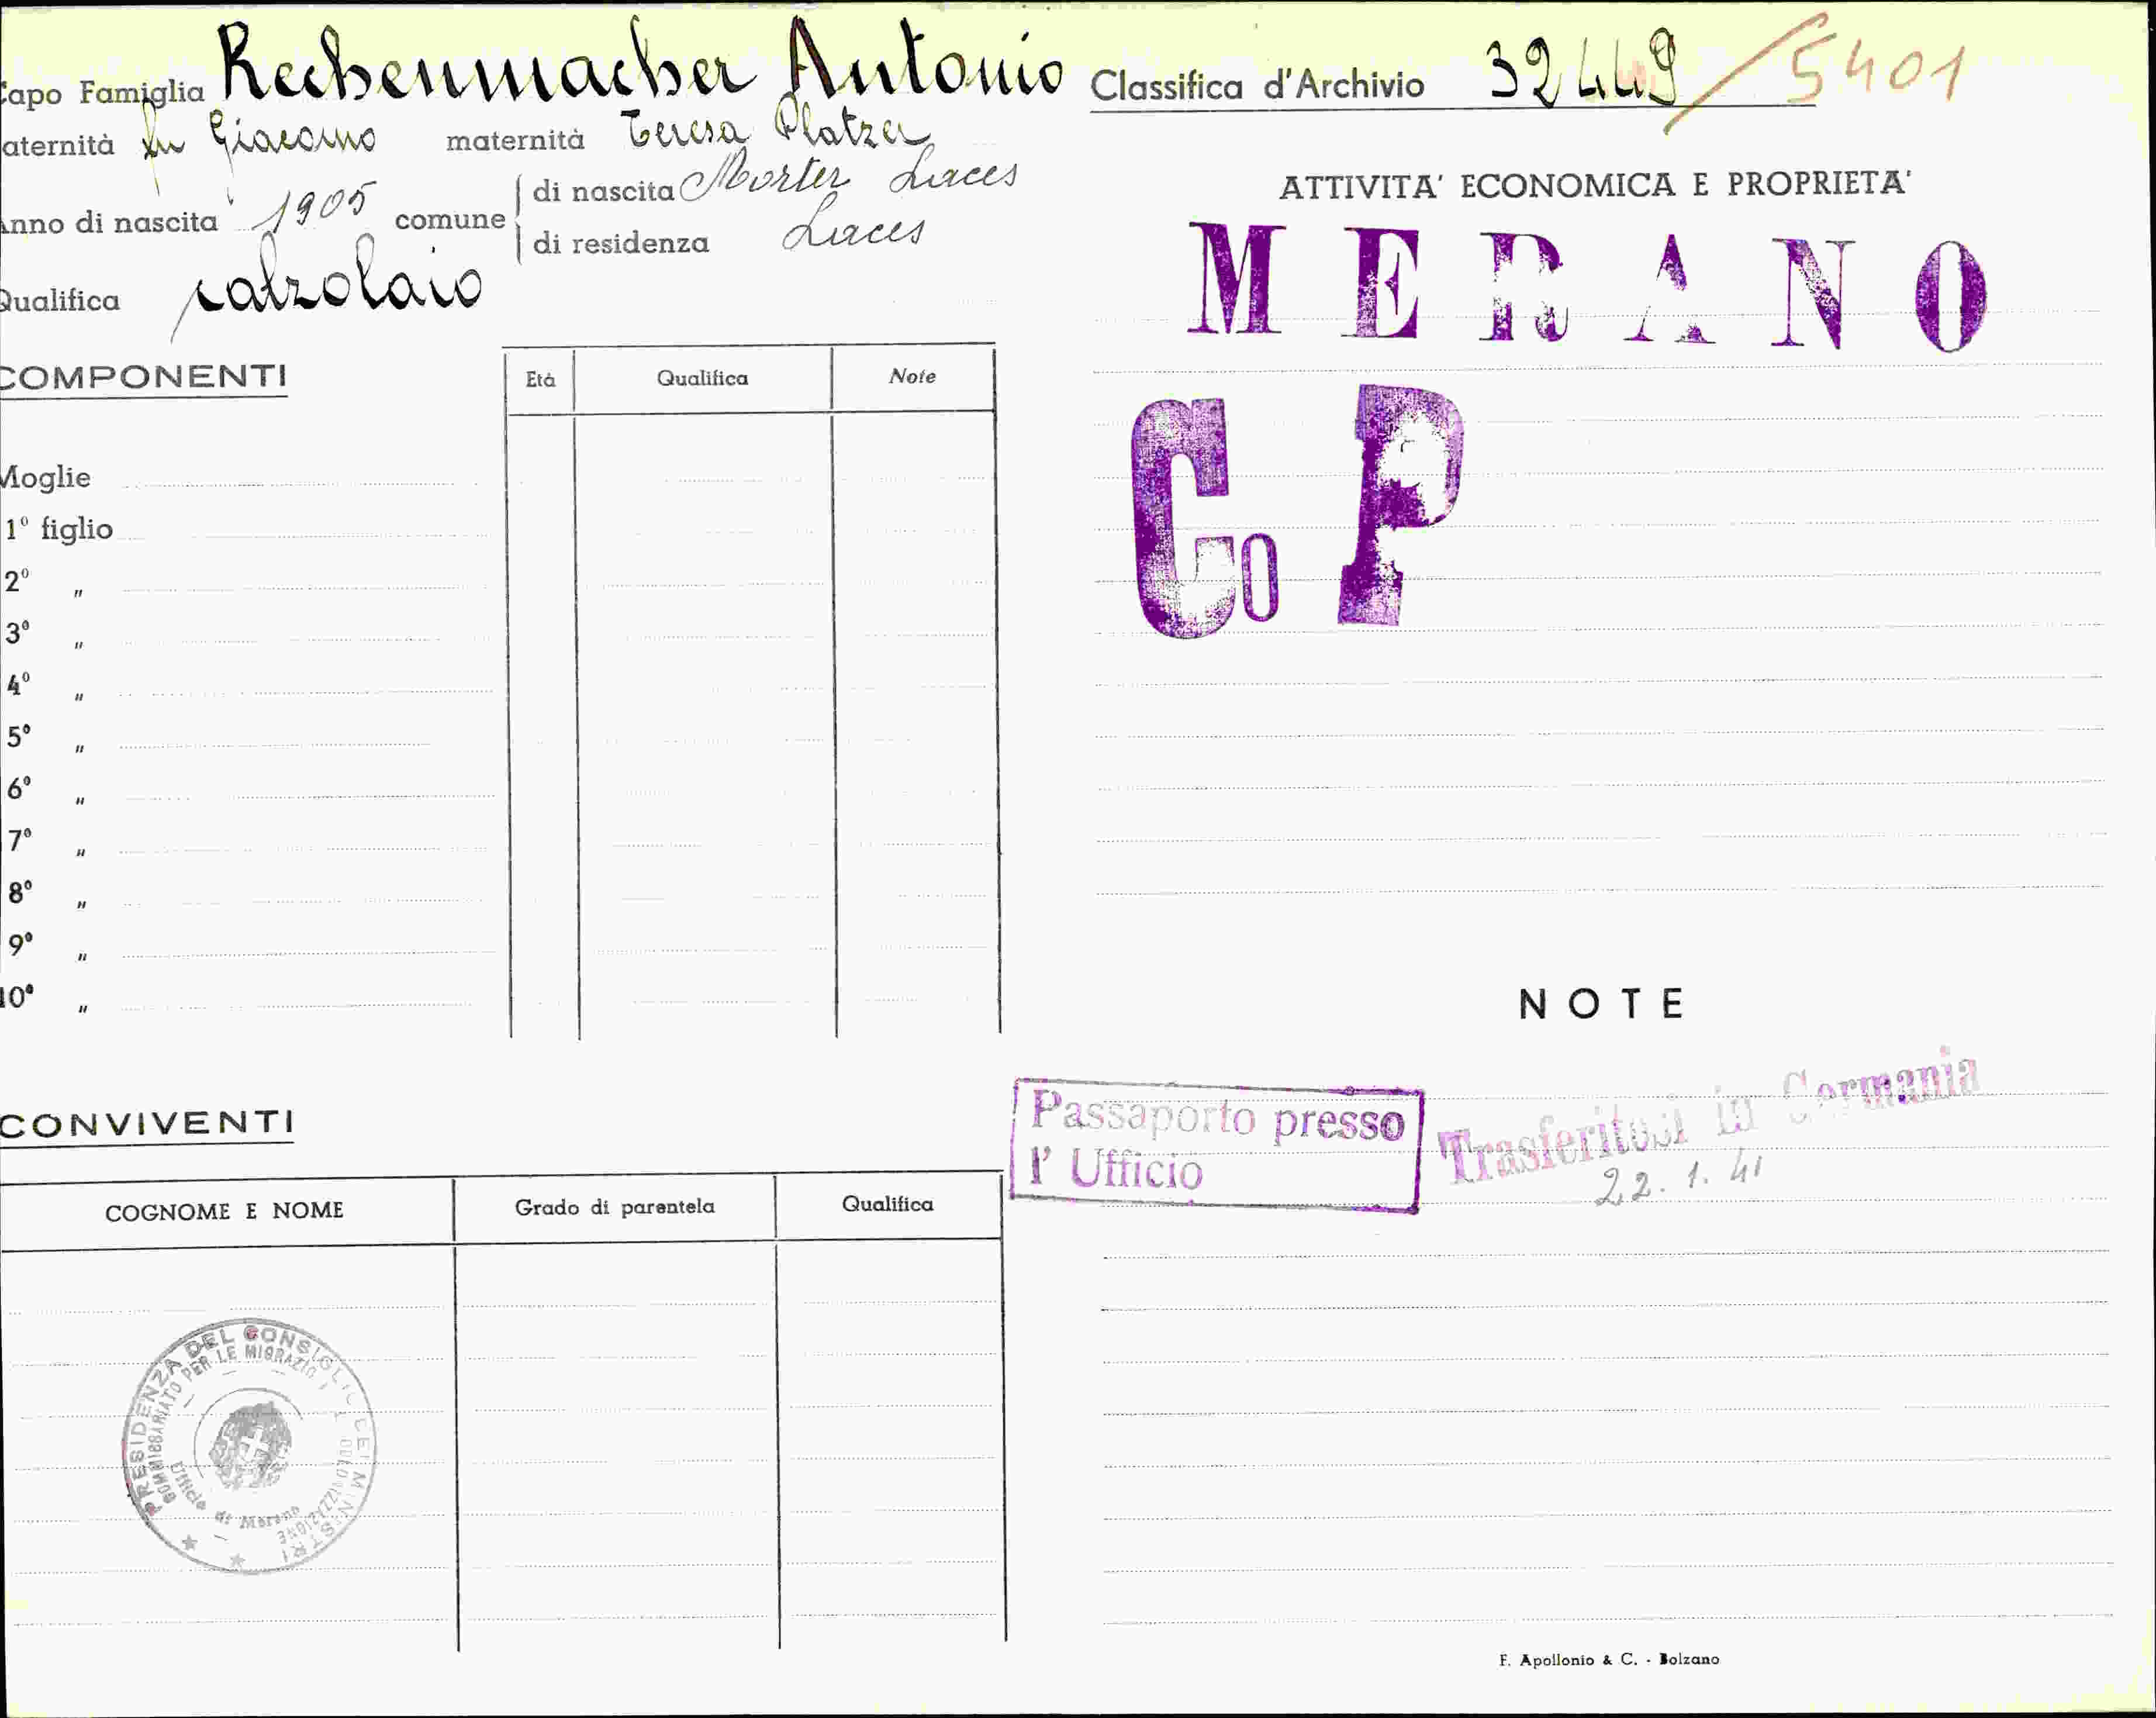 Capo Famiglia Rechenmacher Antonio
aternità fu Giacomo maternità Teresa Platzer
Anno di nascita 1905 comune di nascita Morter Laces
di residenza Laces
Qualifica calzolaio
COMPONENTI
Età Qualifica Note
Moglie
1º figlio
2º "
3º "
4º "
5º "
6º "
7º "
8º "
9º "
10º "
CONVIVENTI
COGNOME E NOME Grado di parentela Qualifica
PRESIDENZA DEL CONSIGLIO DEI MINISTRI
COMMISSARIATO PER LE MIGRAZIONI E COLONIZZAZIONE
Ufficio di Merano
Classifica d'Archivio 32449/5401
ATTIVITA' ECONOMICA E PROPRIETA'
MERANO
Co P
NOTE
Passaporto presso
l' Ufficio
Trasferitosi in Germania
22.1.41
F. Apollonio & C. - Bolzano